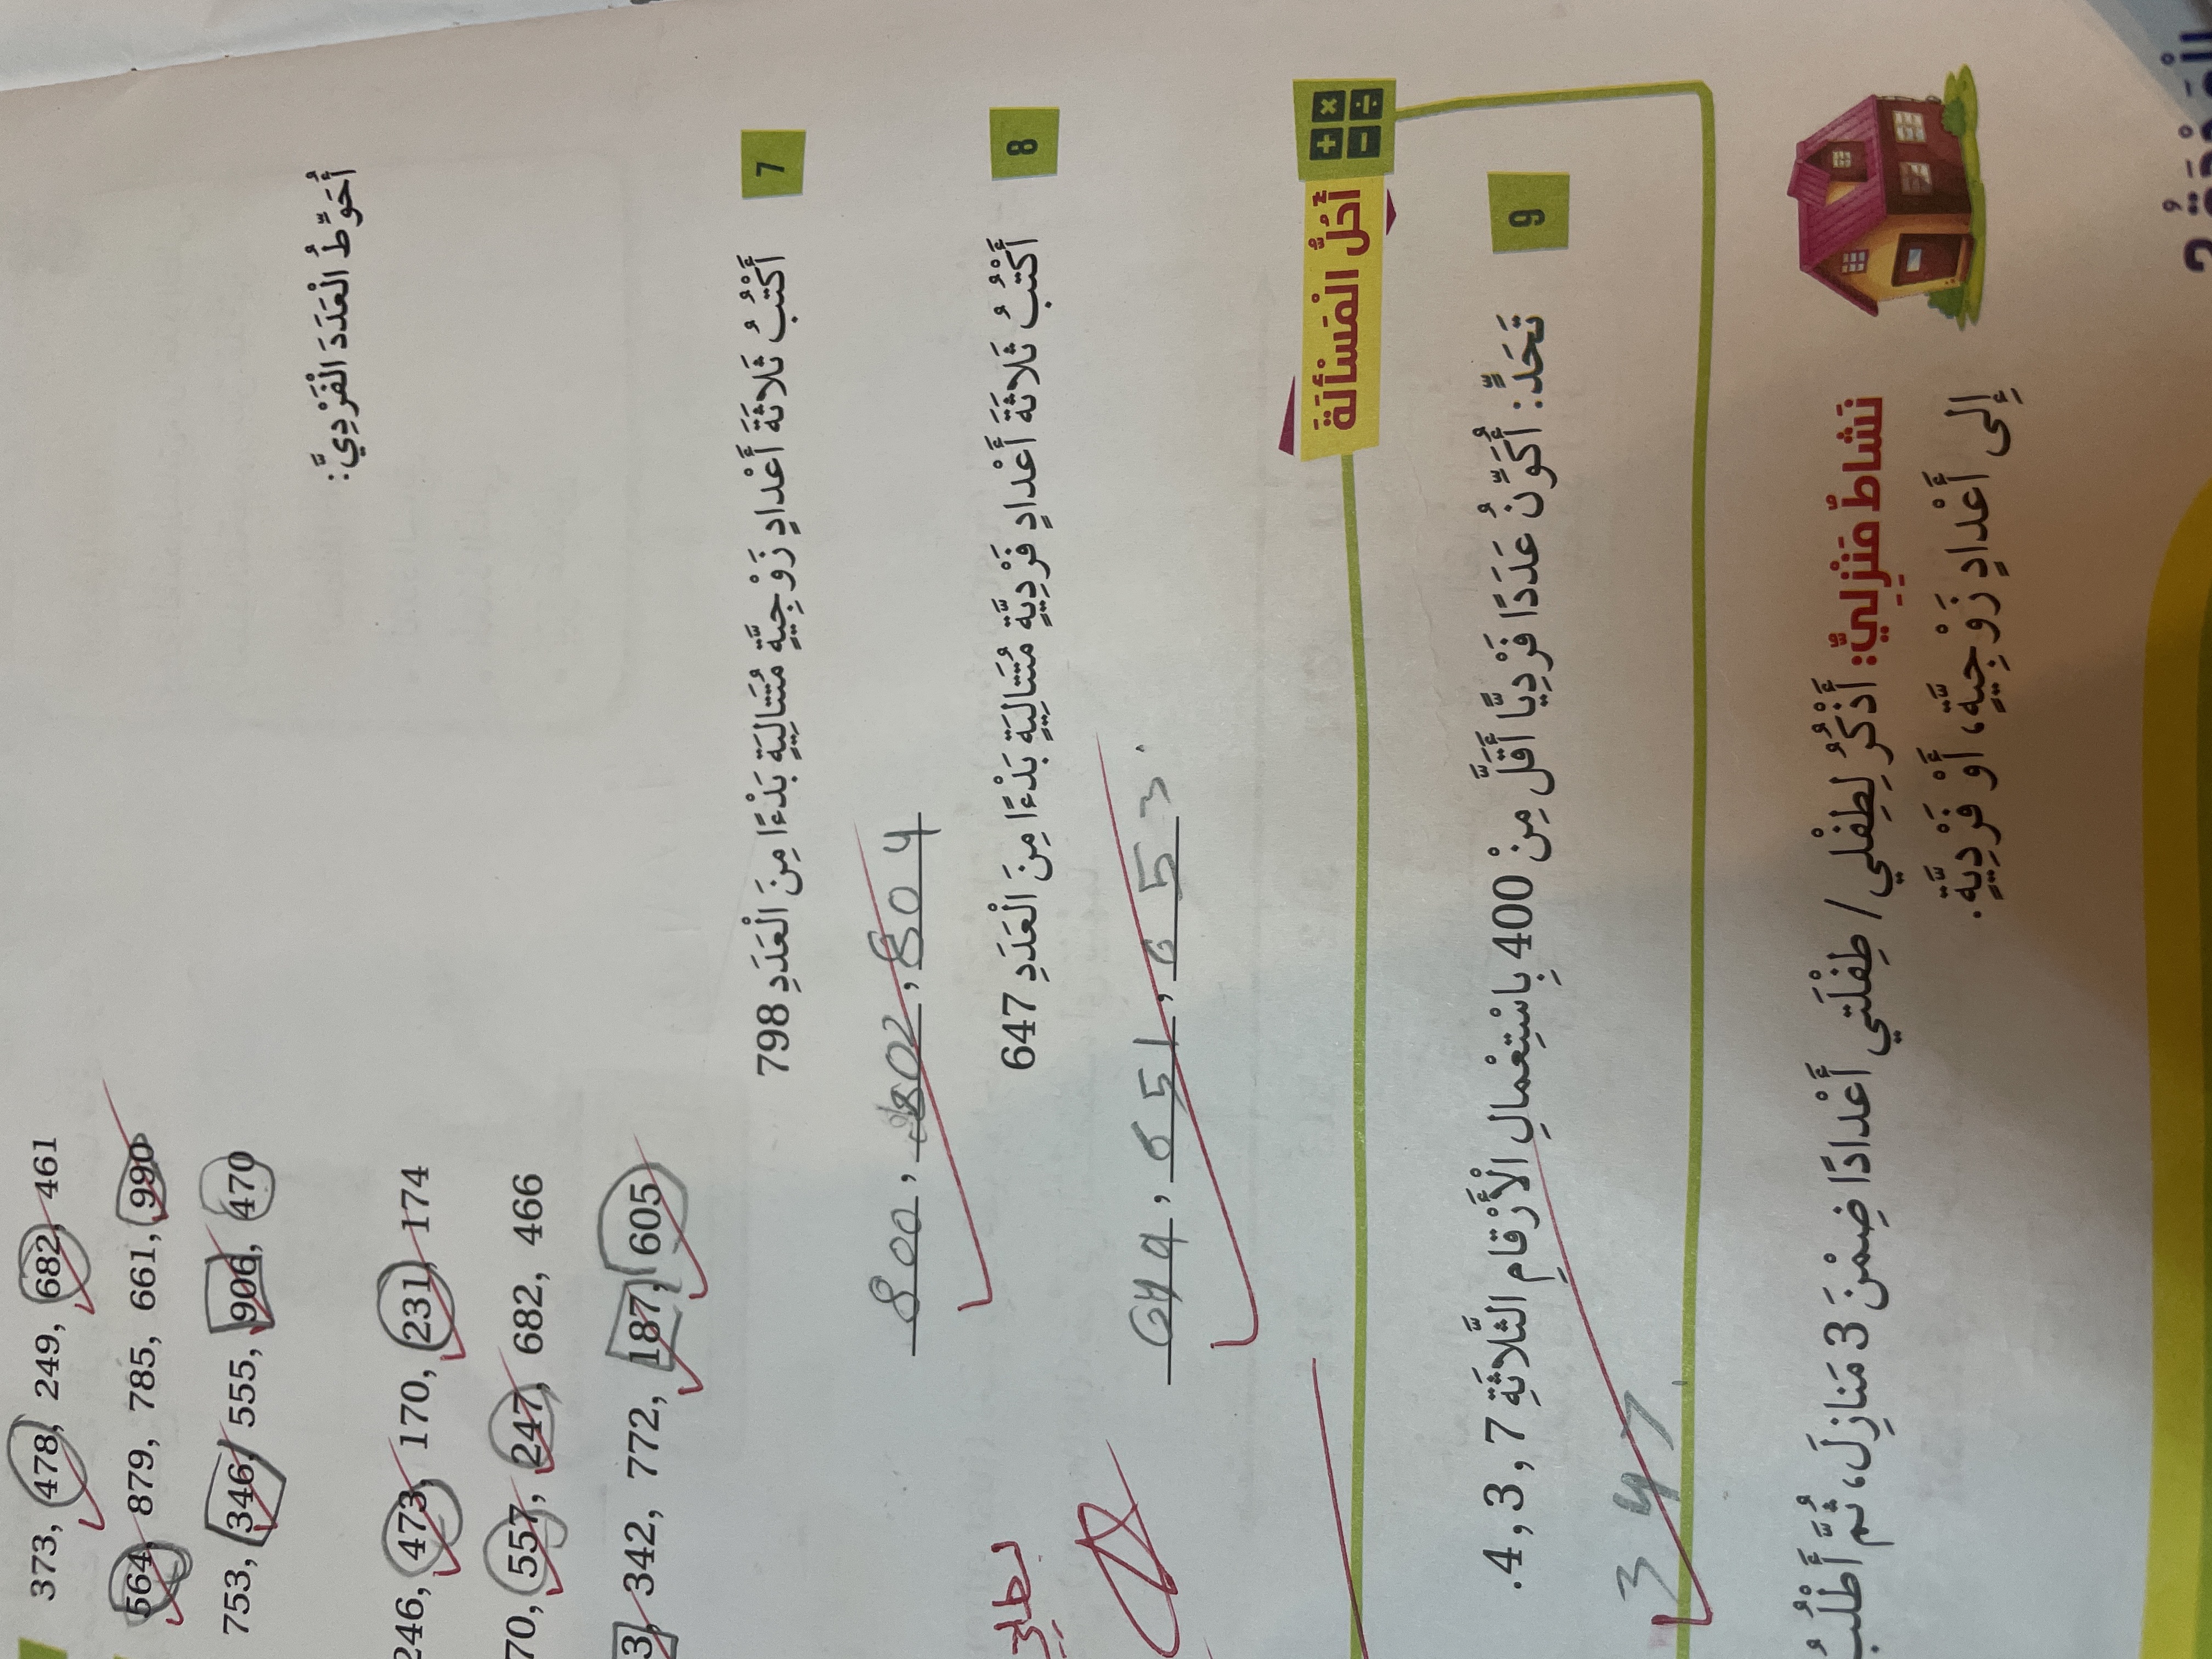 373, 478, 249, 682, 461
564, 879, 785, 661, 990
753, 346, 555, 906, 470
أُحَوِّطُ الْعَدَدَ الْفَرْدِيَّ:
246, 473, 170, 231, 174
70, 557, 247, 682, 466
3, 342, 772, 187, 605
7 أَكْتُبُ ثَلَاثَةَ أَعْدادٍ زَوْجِيَّةٍ مُتَتالِيَةٍ بَدْءًا مِنَ الْعَدَدِ 798
800, 802, 804
8 أَكْتُبُ ثَلَاثَةَ أَعْدادٍ فَرْدِيَّةٍ مُتَتالِيَةٍ بَدْءًا مِنَ الْعَدَدِ 647
649, 651, 653
أَحُلُّ الْمَسْأَلَةَ
9 تَحَدٍّ: أُكَوِّنُ عَدَدًا فَرْدِيًّا أَقَلَّ مِنْ 400 بِاسْتِعْمالِ الْأَرْقامِ الثَّلَاثَةِ 7 ,3 ,4.
347
نَشاطٌ مَنْزِلِيٌّ: أَذْكُرُ لِطِفْلي / طِفْلَتي أَعْدادًا ضِمْنَ 3 مَنازِلَ، ثُمَّ أَطْلُبُ
إِلى أَعْدادٍ زَوْجِيَّةٍ، أَوْ فَرْدِيَّةٍ.